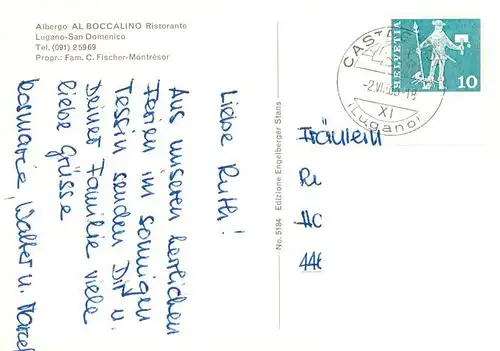 Albergo AL BOCCALINO Ristorante
Lugano-San Domenico
Tel. (091) 2 59 69
Propr.: Fam. C. Fischer-Montrésor
Liebe Ruth!
Aus unseren herrlichen
Ferien im sonnigen
Tessin senden Dir u.
Deiner Familie viele
liebe Grüsse
Rosmarie, Walter u. Marcel
No. 5184 Edizione Engelberger Stans
HELVETIA
10
XI
(Lugano)
Fräulein